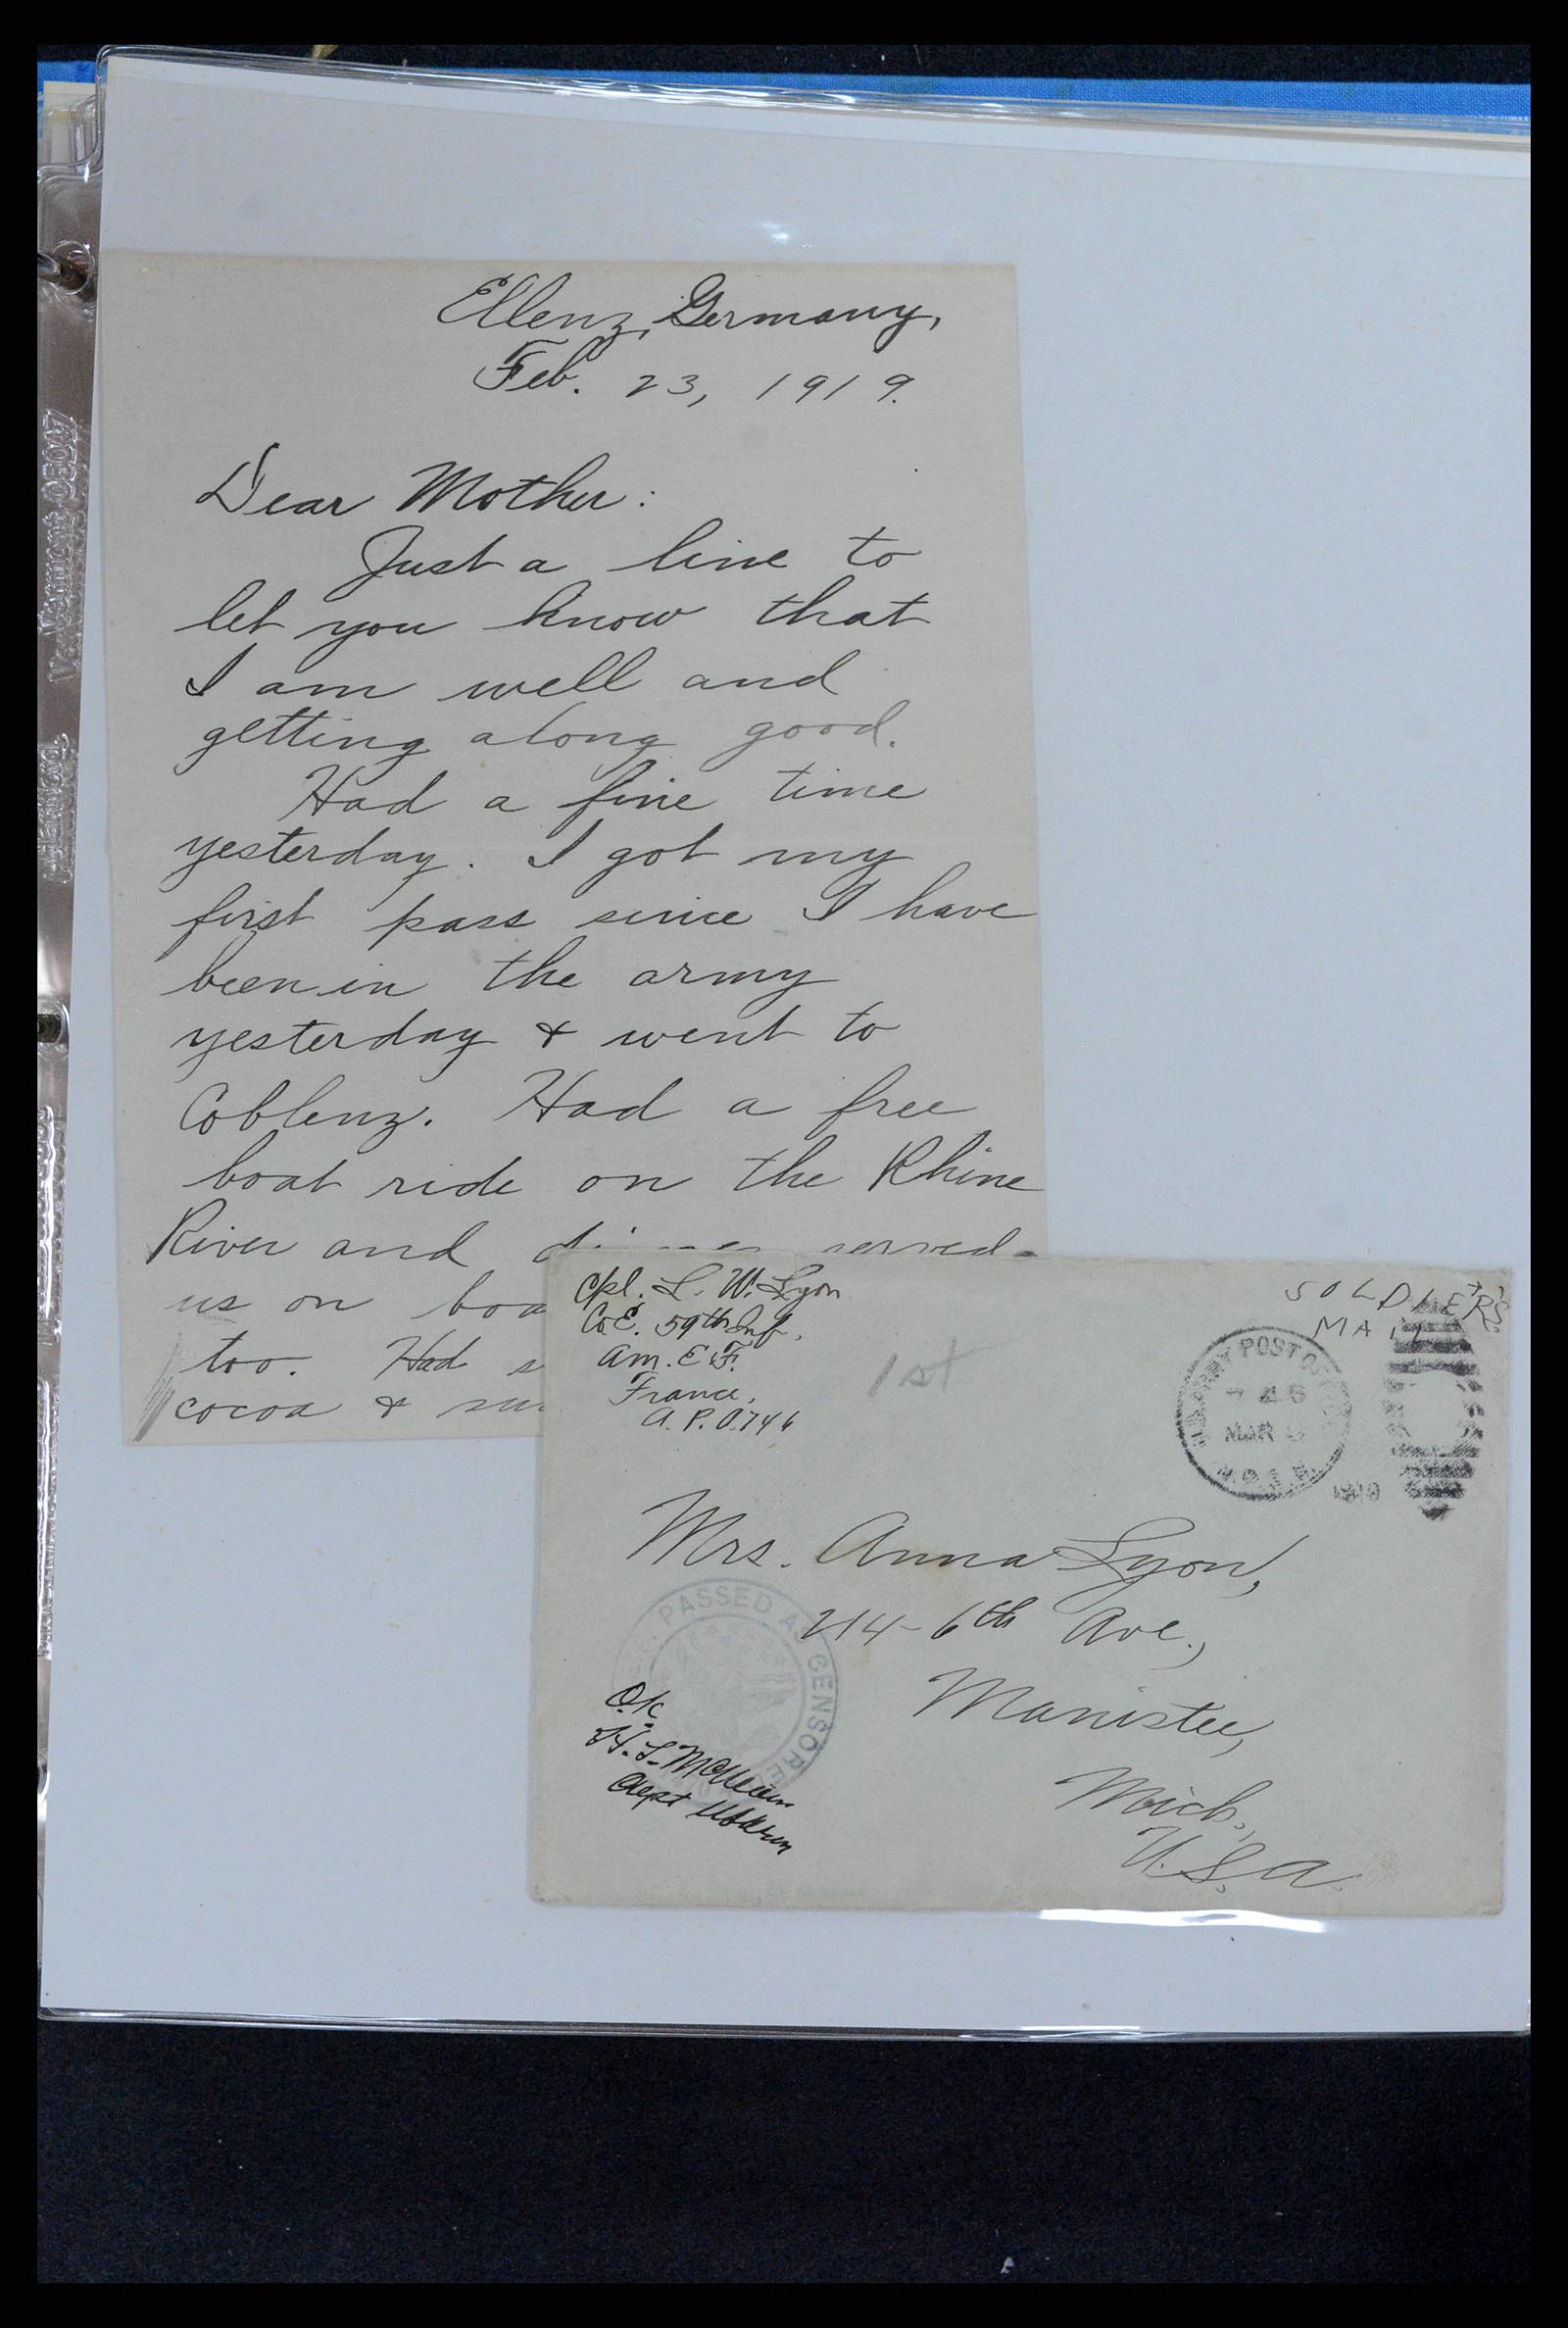 Ellenz, Germany,
Feb. 23, 1919.
Dear Mother:
Just a line to
let you know that
I am well and
getting along good.
Had a fine time
yesterday. I got my
first pass since I have
been in the army
yesterday & went to
Coblenz. Had a free
boat ride on the Rhine
River and dinner served
us on
too. Had
cocoa &
Cpl. L. W. Lyon
Co E. 59th Inf,
Am. E. F.
France,
A. P. O. 746
1st
SOLDIER'S
MAIL
POST
MAR
1919
Mrs. Anna Lyon,
214 - 6th Ave.,
Manistee,
Mich.,
U.S.A.
PASSED AS CENSORED
O.K.
Capt
Vermont 05047